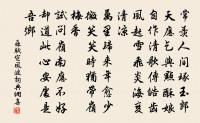 常羨人間琢玉郎
天應乞與點酥娘
自作清歌傳皓齒
風起雪飛炎海變
清涼
萬里歸來年愈少
微笑笑時猶帶嶺
梅香
試問嶺南應不好
却道此心安處是
吾鄉
蘇軾定風波